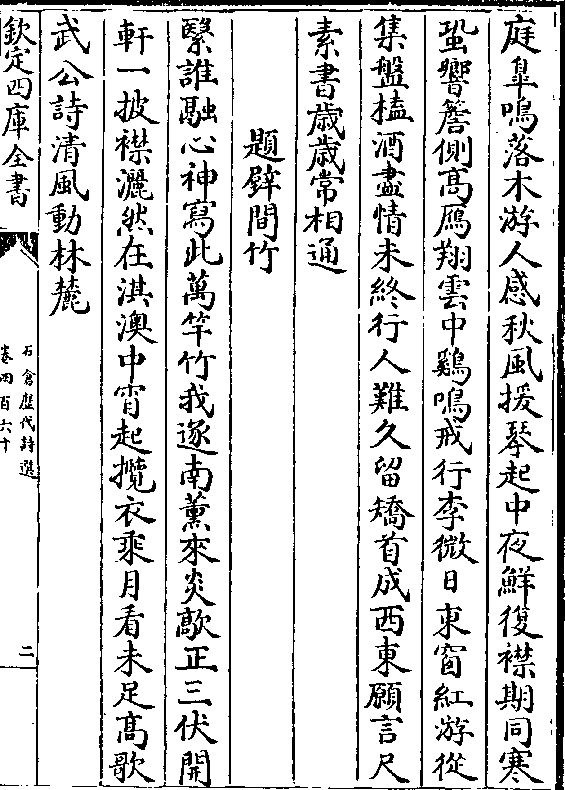 庭臯鳴落木游人感秋風援琴起中夜鮮復襟期同寒
蛩響簷側髙鴈翔雲中鷄鳴戒行李微日東窗紅游從
集盤榼酒盡情未終行人難久留矯首成西東願言尺
素書歳歳常相通
題壁間竹
緊誰融心神寫此萬竿竹我逐南薫來炎歊正三伏開
軒一披襟灑然在淇澳中宵起攬衣乘月看未足髙歌
武公詩清風動林麓
欽定四庫全書
石倉歴代詩選
卷四百六十
二